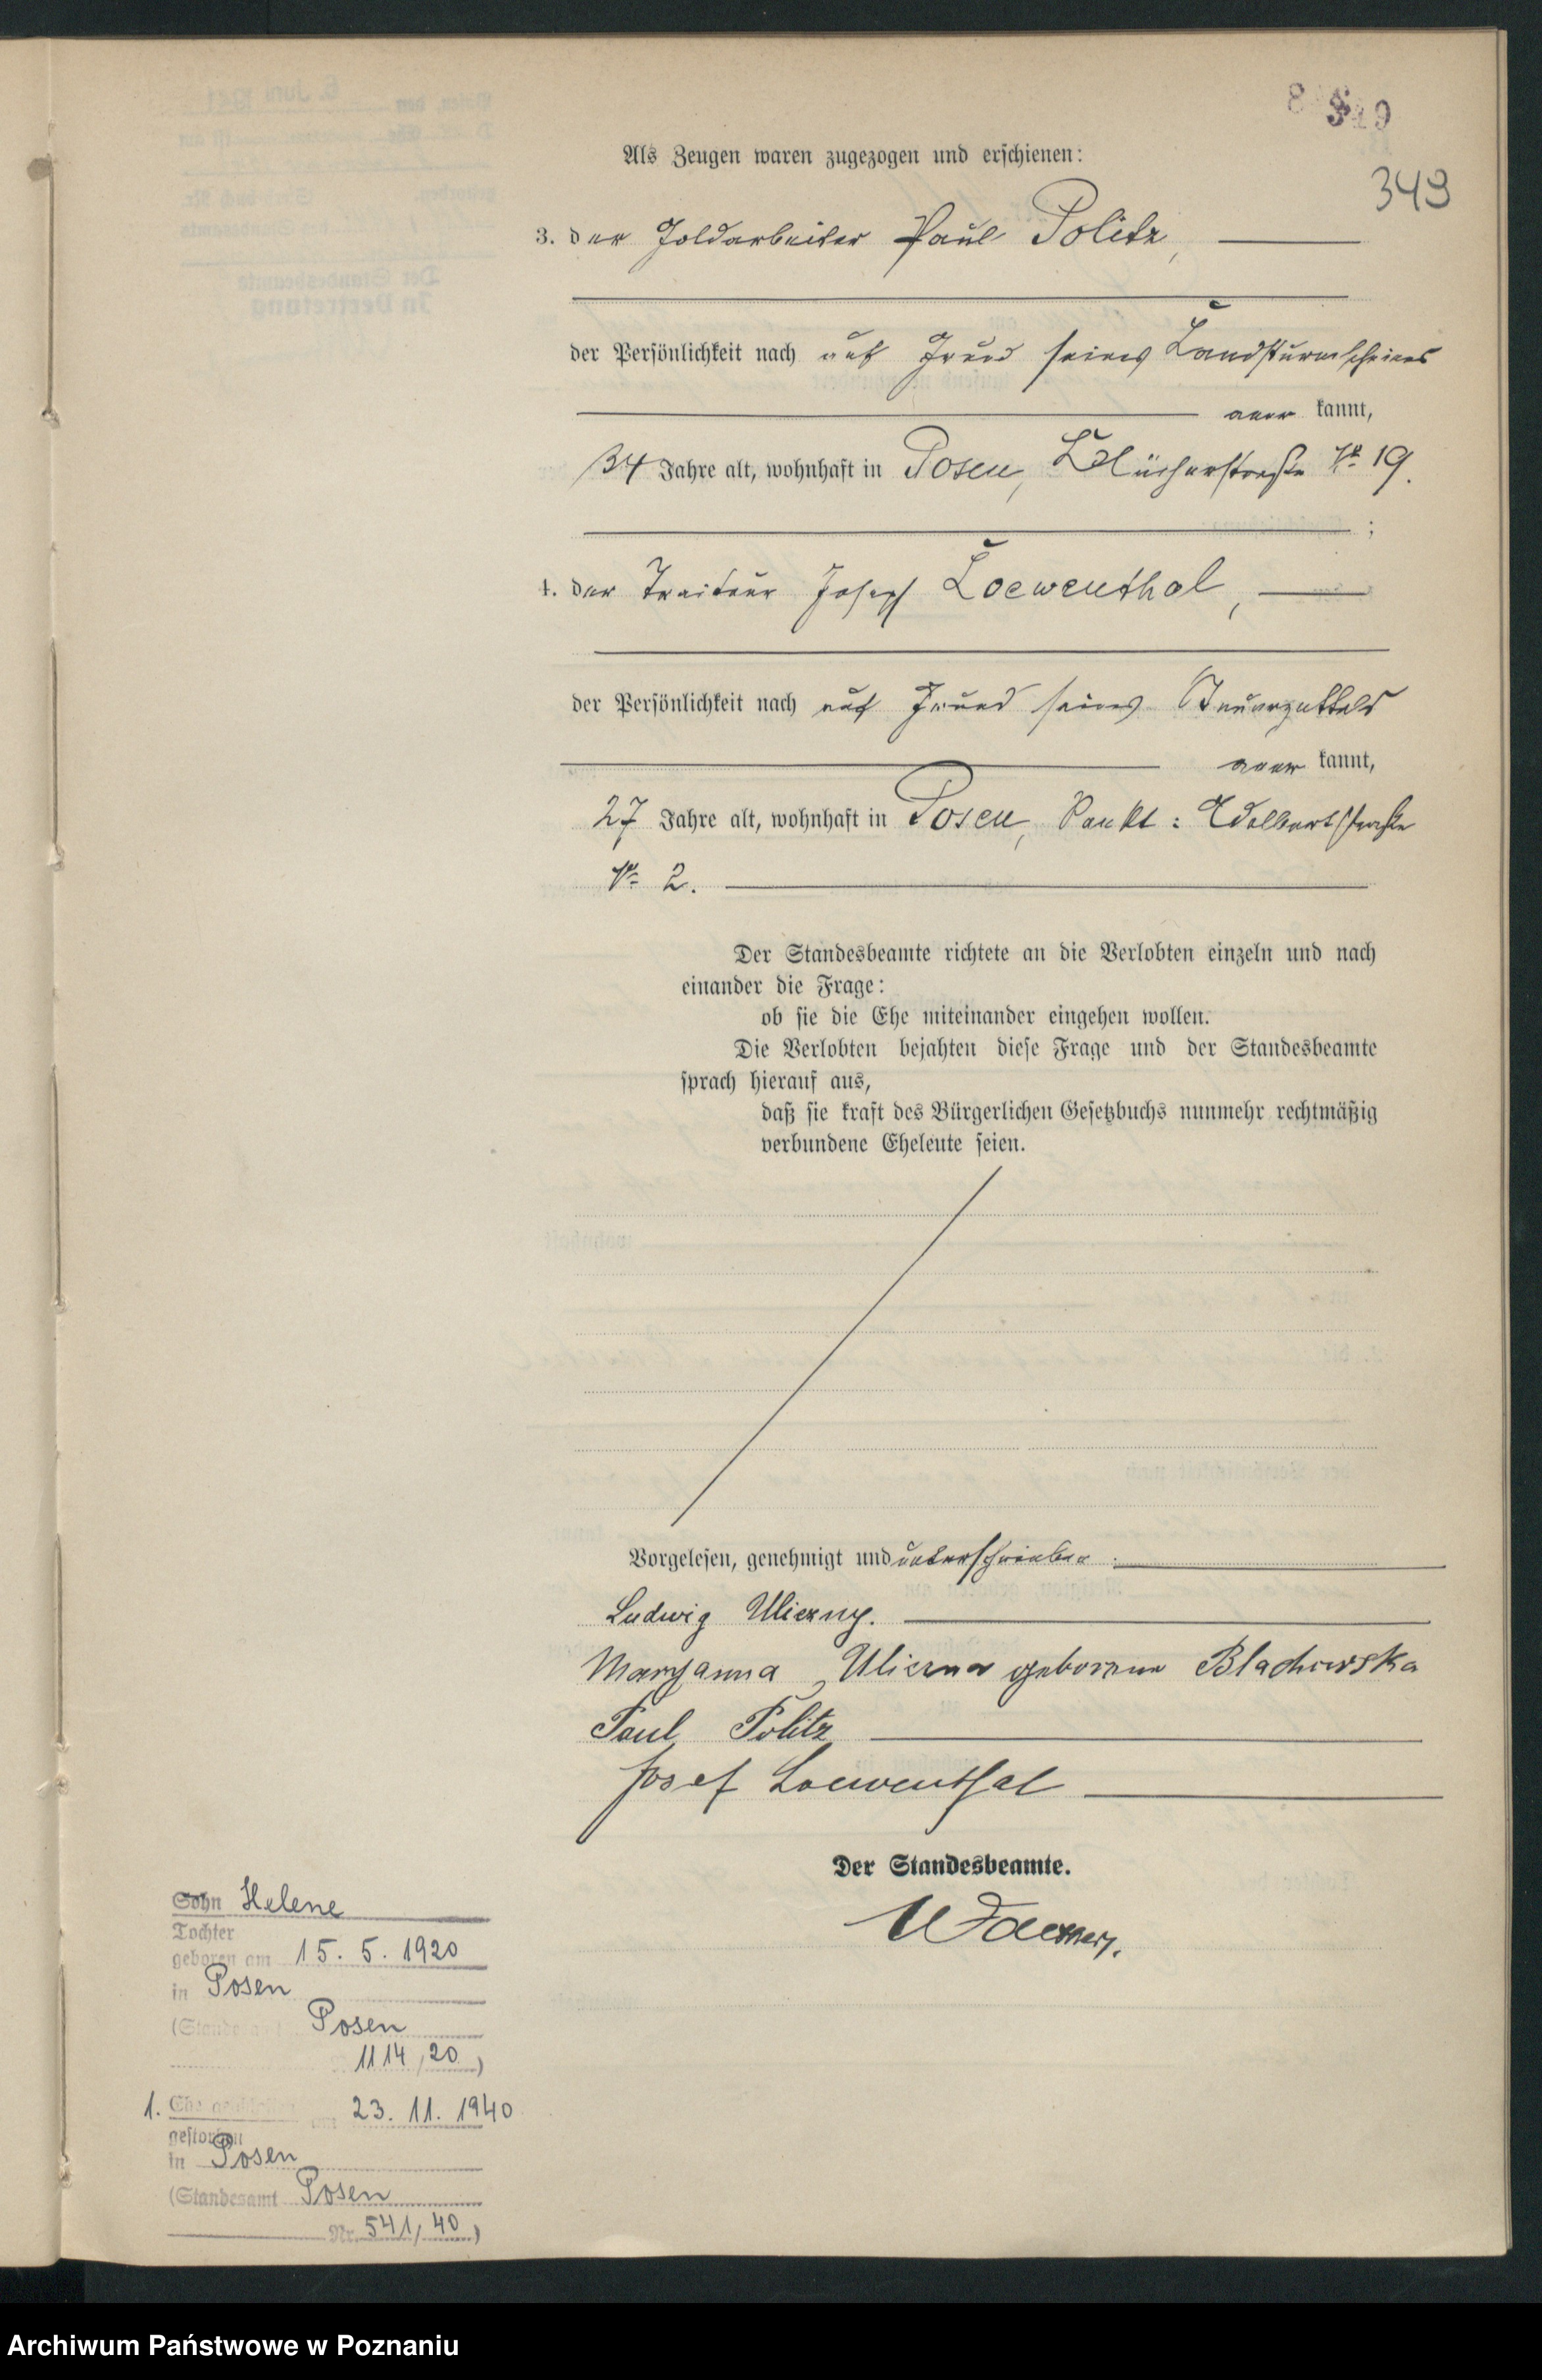 349
Als Zeugen waren zugezogen und erschienen:
3. der Goldarbeiter Paul Politz,
der Persönlichkeit nach auf Grund seines Landsturmscheines
aner kannt,
34 Jahre alt, wohnhaft in Posen, Blücherstraße No 19.
;
4. der Traiteur Joseph Loewenthal,
der Persönlichkeit nach auf Grund seines Steuerzettels
aner kannt,
27 Jahre alt, wohnhaft in Posen, Sankt: Adalbertstraße
No 2.
Der Standesbeamte richtete an die Verlobten einzeln und nach
einander die Frage:
ob sie die Ehe miteinander eingehen wollen.
Die Verlobten bejahten diese Frage und der Standesbeamte
sprach hierauf aus,
daß sie kraft des Bürgerlichen Gesetzbuchs nunmehr rechtmäßig
verbundene Eheleute seien.
Vorgelesen, genehmigt und unterschrieben.
Ludwig Uliczny.
Maryanna Uliczna geborene Blachowska
Paul Politz
Josef Loewenthal
Der Standesbeamte.
Sohn Helene
Tochter
geboren am 15. 5. 1920
in Posen
(Standesamt Posen
1114/20)
1. Ehe geschlossen am 23. 11. 1940
gestorben
in Posen
(Standesamt Posen
Nr. 541/40)
Archiwum Państwowe w Poznaniu